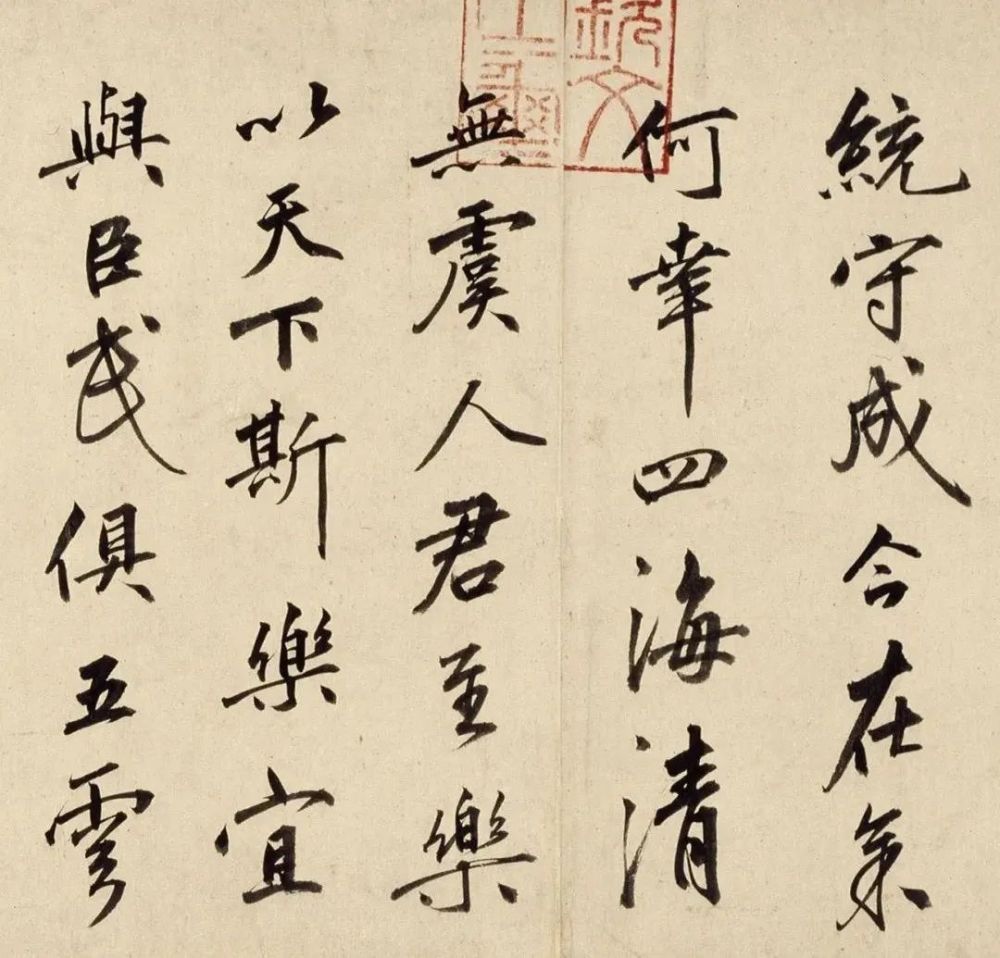 統守成今在余
何幸四海清
無虞人君至樂
以天下斯樂宜
與臣民俱五雲
欽文
之璽